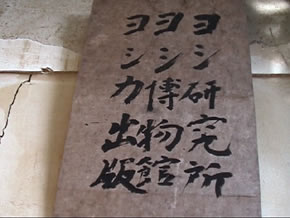 ヨシ研究所
ヨシ博物館
ヨシカ出版